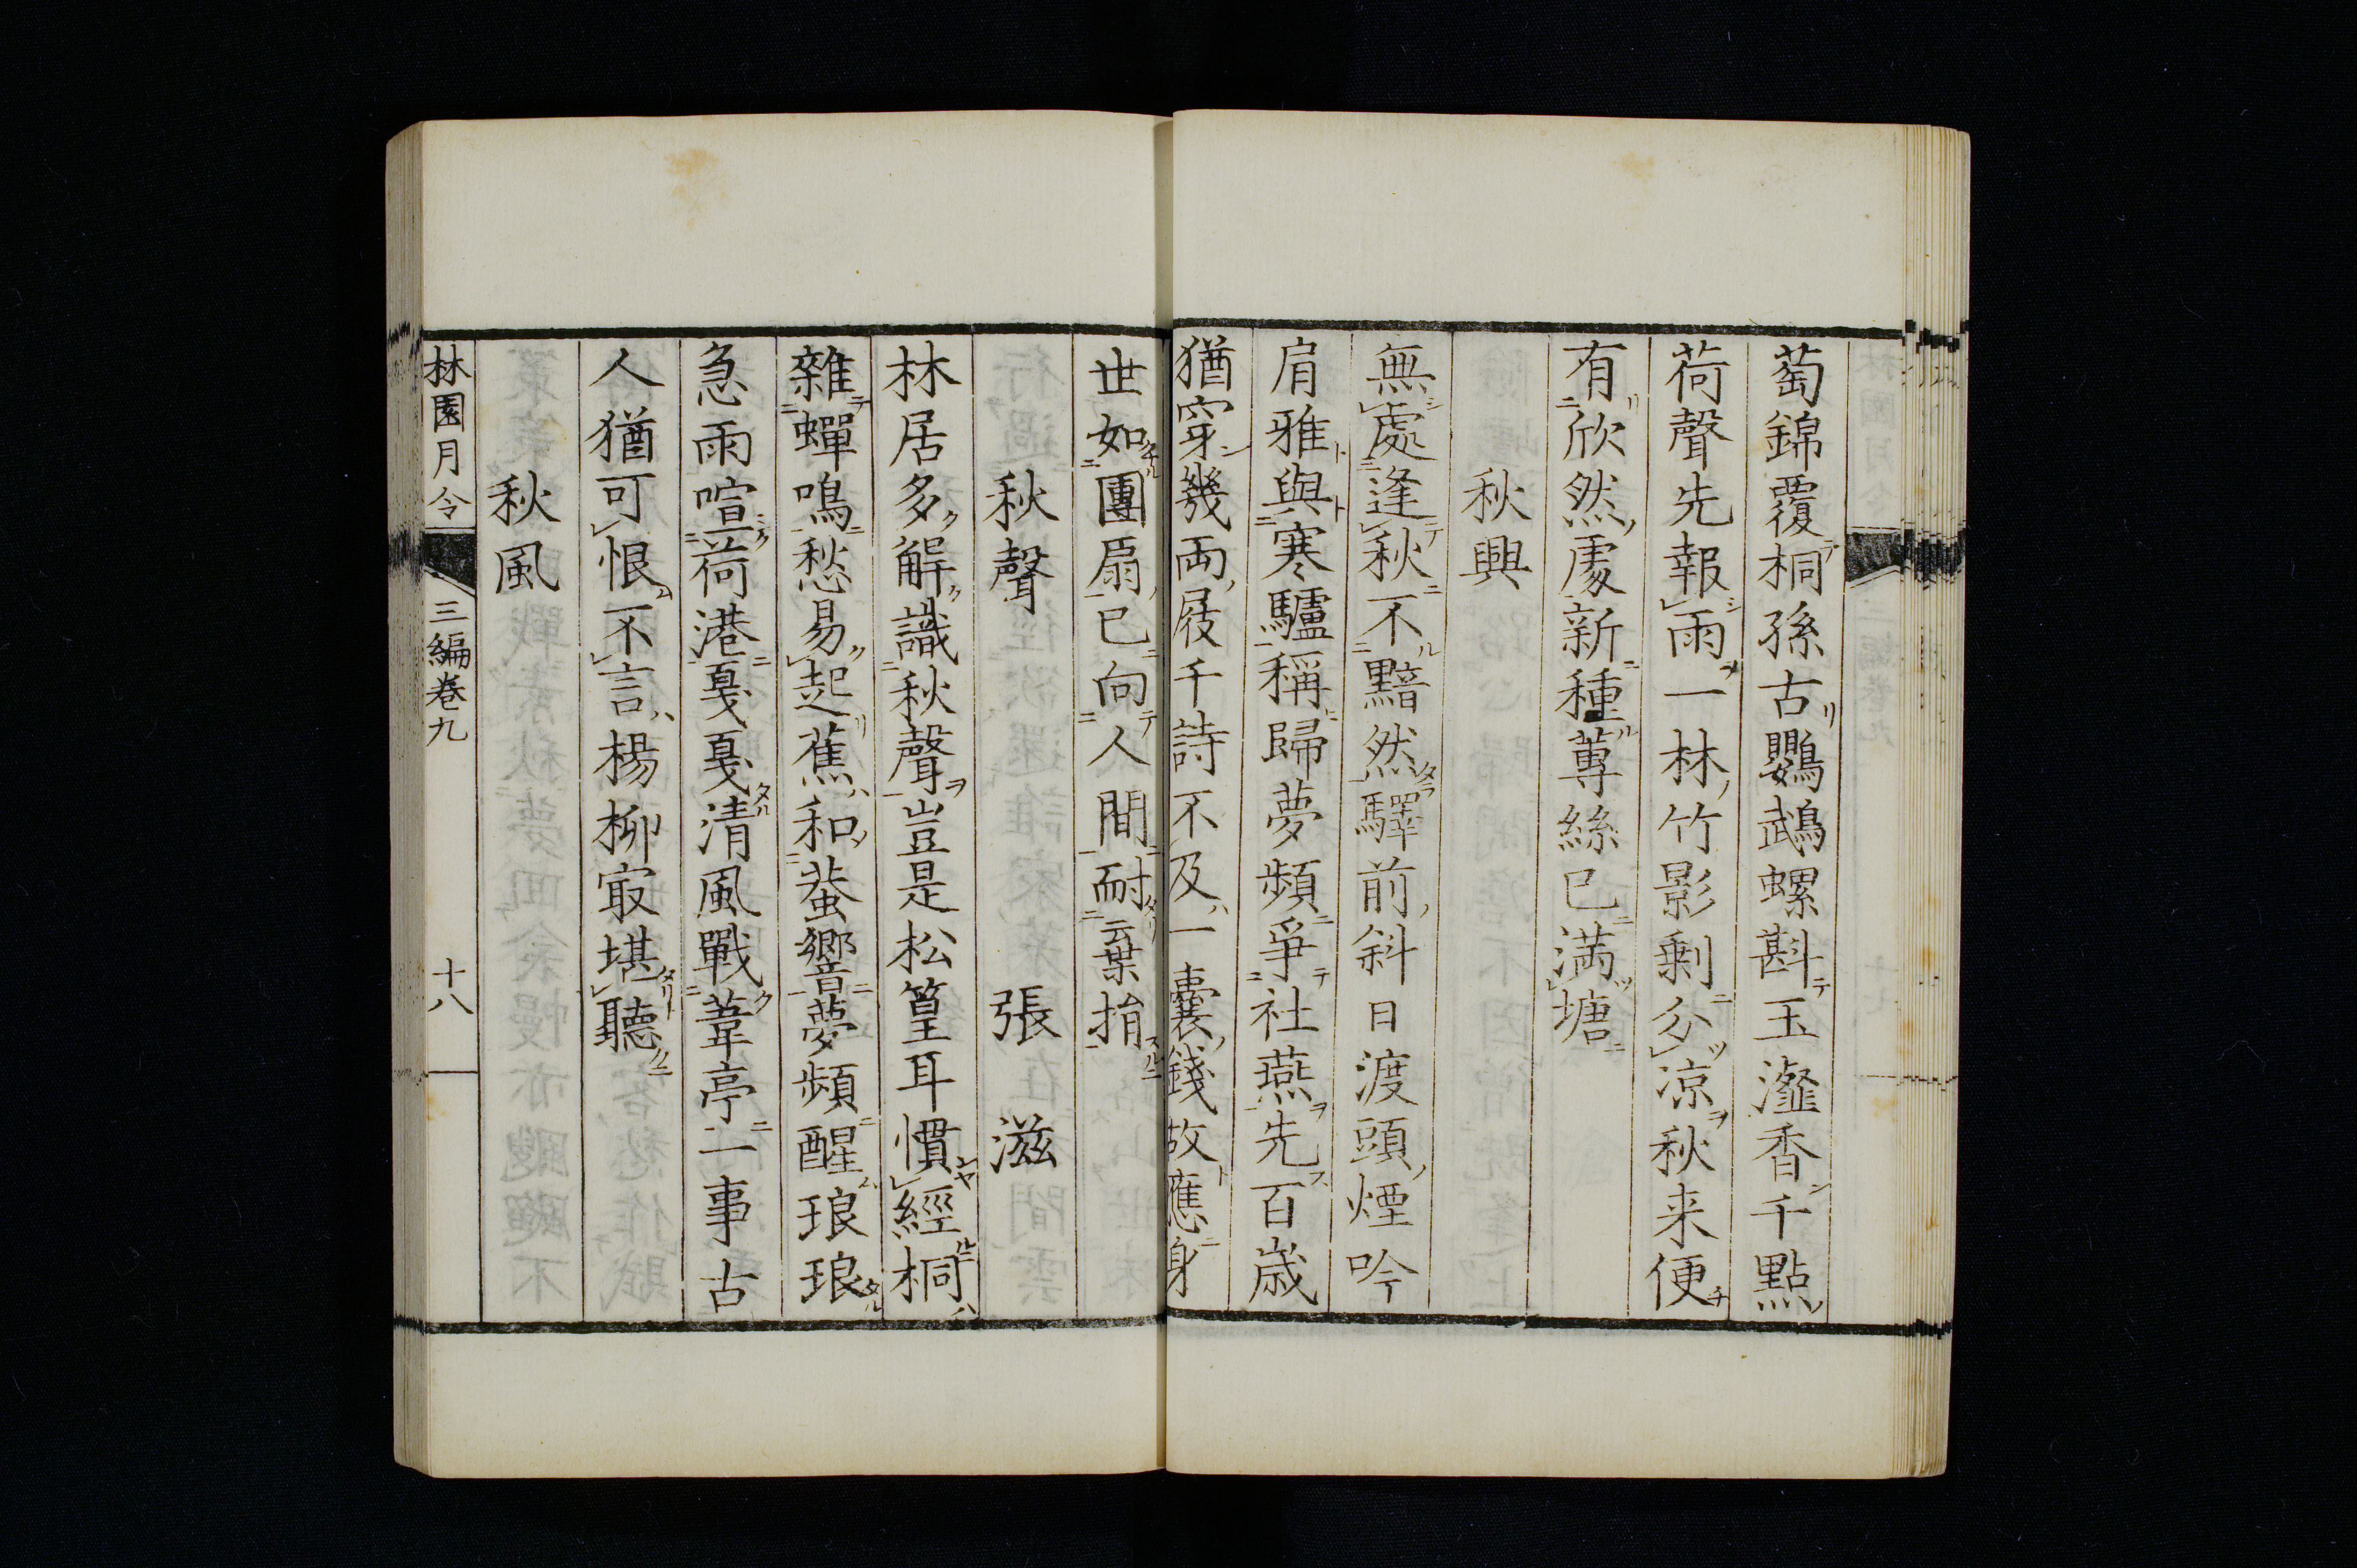 萄錦覆桐孫古鸚鵡螺斟玉瀣香千點
荷聲先報雨一林竹影剩分凉秋来便
有欣然處新種蓴絲已満塘
秋興
無處逢秋不黯然驛前斜日渡頭煙吟
肩雅與寒驢稱歸夢頻爭社燕先百歳
猶穿幾両屐千詩不及一囊錢故應身
世如團扇已向人間耐棄捐
秋聲　張滋
林居多解識秋聲豈是松篁耳慣經桐
雜蟬鳴愁易起蕉和蛩響夢頻醒琅琅
急雨喧荷港戛戛清風戰葦亭一事古
人猶可恨不言楊柳冣堪聽
秋風
林園月令　三編卷九　十八